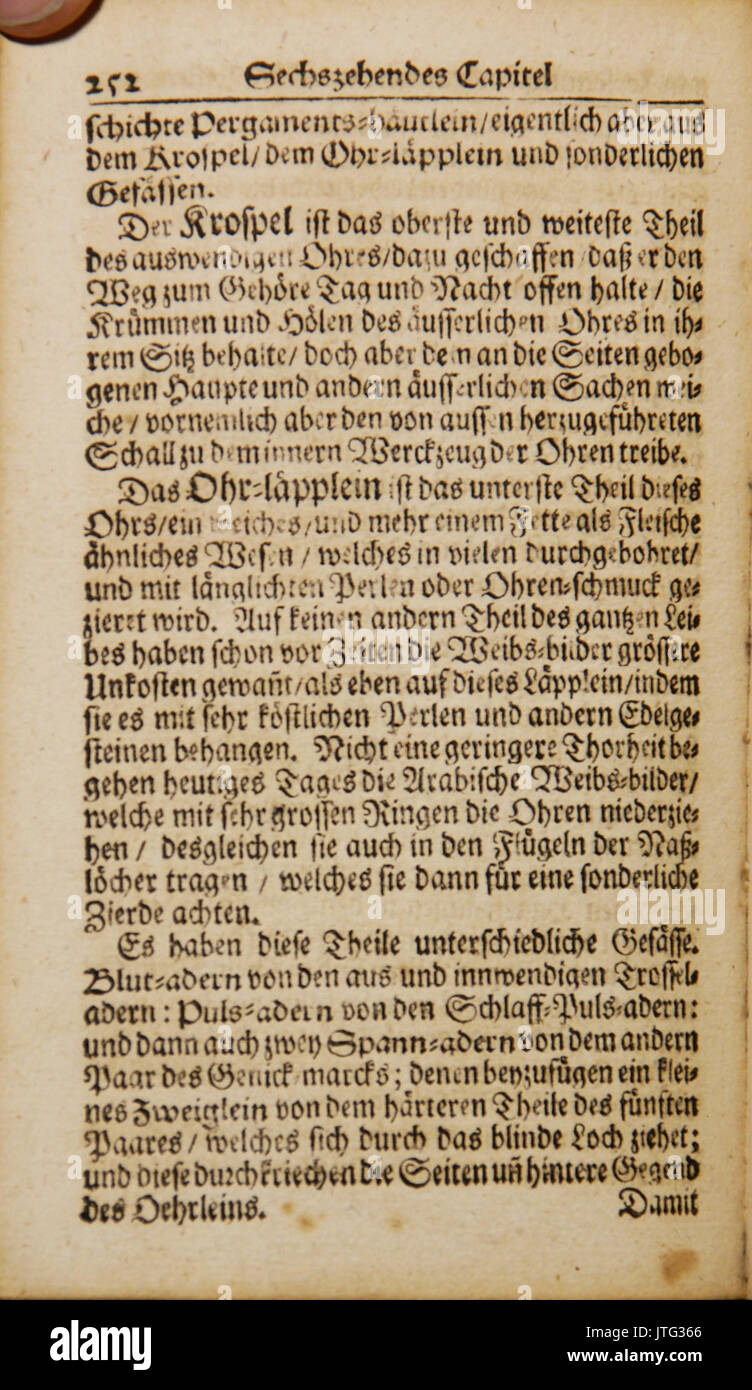 252 Sechszehendes Capitel
schichte Pergaments-häutlein/eigentlich aber aus
dem Krospel/ dem Ohr-läpplein und sonderlichen
Gefässen.
Der Krospel ist das oberste und weiteste Theil
des auswendigen Ohres/dazu geschaffen daß er den
Weg zum Gehöre Tag und Nacht offen halte / die
Krümmen und Hölen des äusserlichen Ohres in ih-
rem Sitz behalte/ doch aber dem an die Seiten gebo-
genen Haupte und andern äusserlichen Sachen wei-
che / vornemlich aber den von aussen herzugeführeten
Schall zu dem innern Werckzeug der Ohren treibe.
Das Ohr-läpplein ist das unterste Theil dieses
Ohrs/ein weiches/und mehr einem Fette als Fleische
ähnliches Wesen / welches in vielen durchgebohret/
und mit länglichten Perlen oder Ohren-schmuck ge-
zieret wird. Auf keinen andern Theil des gantzen Lei-
bes haben schon vor Zeiten die Weibs-bilder grössere
Unkosten gewañt/als eben auf dieses Läpplein/indem
sie es mit sehr köstlichen Perlen und andern Edelge-
steinen behangen. Nicht eine geringere Thorheit be-
gehen heutiges Tages die Arabische Weibs-bilder/
welche mit sehr grossen Ringen die Ohren niederzie-
hen / desgleichen sie auch in den Flügeln der Naß-
löcher tragen / welches sie dann für eine sonderliche
Zierde achten.
Es haben diese Theile unterschiedliche Gefässe.
Blut-adern von den aus und innwendigen Trossel-
adern: Puls-adern von den Schlaff-Puls-adern:
und dann auch zwey Spann-adern von dem andern
Paar des Genick marcks; denen beyzufügen ein klei-
nes Zweiglein von dem härteren Theile des fünften
Paares/ welches sich durch das blinde Loch ziehet;
und diese durchkriechen die Seiten uñ hintere Gegend
des Oehrleins. Damit
alamy
Image ID: JTG366
www.alamy.com